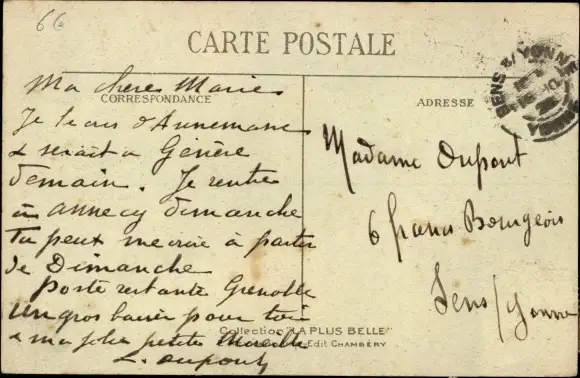 66
CARTE POSTALE
CORRESPONDANCE
ADRESSE
SENS s/YONNE
Ma chere Marie
Je d'Annemasse
& serait a Genève
demain. Je rentre
à annecy dimanche
Tu peux à partir
de Dimanche
poste restante Grenoble
un gros baiser pour toi
& ma jolie petite Mireille
L. Dupont
Madame Dupont
6 Bourgeois
Sens/Yonne
Collection "LA PLUS BELLE"
Edit CHAMBÉRY